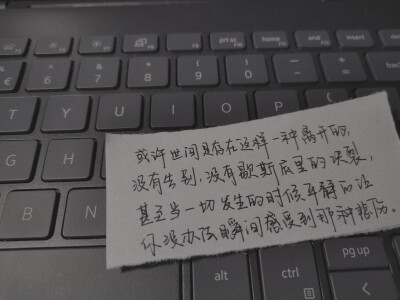 F5
F6
F7
F8
F9
F10
prt sc
F10
home
end
insert
€
6
7
8
9
0
-
=
T
Y
U
I
O
P
G
H
B
N
或许世间是存在这样一种离开的,
没有告别,没有歇斯底里的决裂,
甚至当一切发生的时候平静的让
你没办法瞬间感受到那种悲伤。
alt
ctrl
pg up